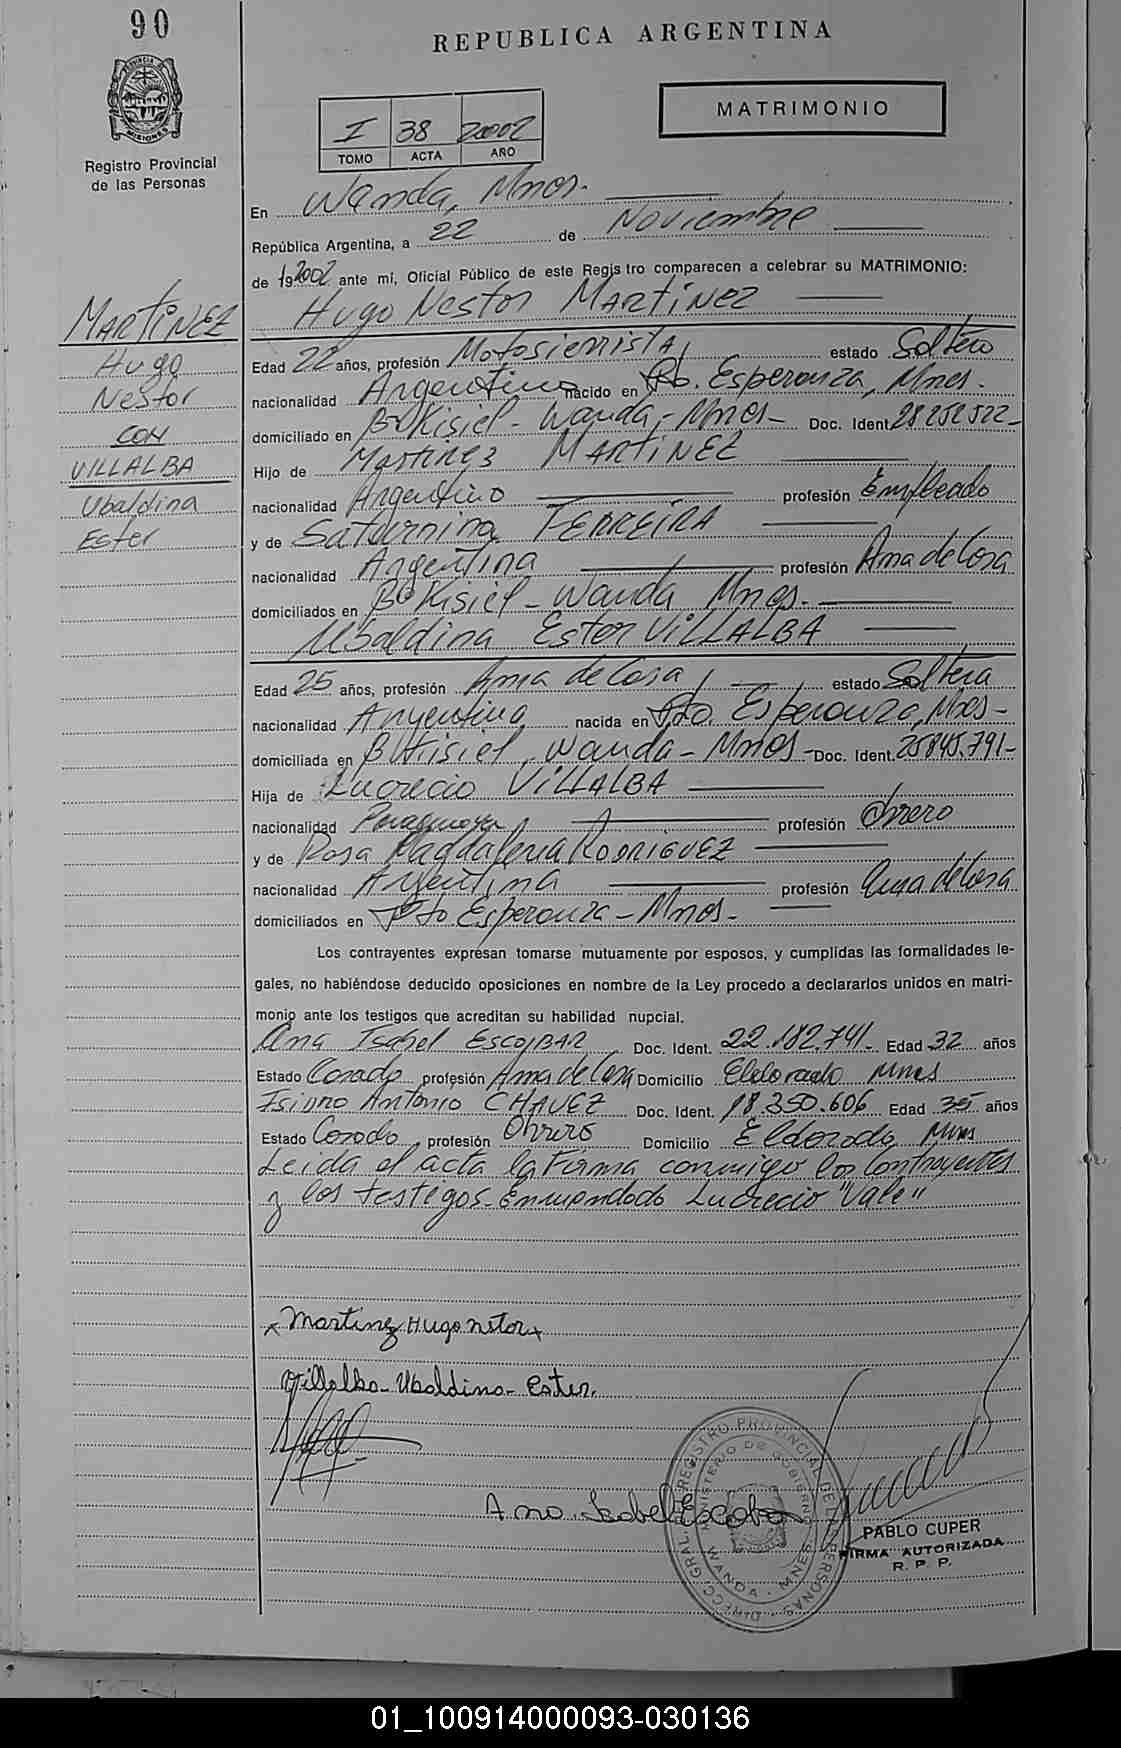 90
REPUBLICA ARGENTINA
PROVINCIA DE MISIONES
Registro Provincial
de las Personas
MATRIMONIO
I 38 2002
TOMO ACTA AÑO
En Wanda, Mnes.
República Argentina, a 22 de Noviembre
de 19 2002 ante mí, Oficial Público de este Registro comparecen a celebrar su MATRIMONIO:
Hugo Nestor MARTINEZ
MARTINEZ
Hugo
Nestor
CON
VILLALBA
Ubaldina
Ester
Edad 22 años, profesión Motosierrista estado Soltero
nacionalidad Argentino nacido en Pto. Esperanza, Mnes.
domiciliado en Bº Kisiel - Wanda, - Mnes - Doc. Ident. 28252522-
Hijo de MARTINEZ
nacionalidad Argentino profesión Empleado
y de Saturnina FERREIRA
nacionalidad Argentina profesión Ama de Casa
domiciliados en Bº Kisiel - Wanda Mnes.
Ubaldina Ester VILLALBA
Edad 25 años, profesión Ama de Casa estado Soltera
nacionalidad Argentina nacida en Pto. Esperanza, Mnes-
domiciliada en Bº Kisiel, Wanda - Mnes - Doc. Ident. 25845.791-
Hija de Lucrecio VILLALBA
nacionalidad Paraguaya profesión Obrero
y de Rosa Magdalena RODRIGUEZ
nacionalidad Argentina profesión Ama de Casa
domiciliados en Pto Esperanza - Mnes-
Los contrayentes expresan tomarse mutuamente por esposos, y cumplidas las formalidades le-
gales, no habiéndose deducido oposiciones en nombre de la Ley procedo a declararlos unidos en matri-
monio ante los testigos que acreditan su habilidad nupcial.
Ana Isabel ESCOBAR Doc. Ident. 22.182.741- Edad 32 años
Estado Casado profesión Ama de Casa Domicilio Eldorado Mnes
Isidro Antonio CHAVEZ Doc. Ident. 18.350.606 Edad 35 años
Estado Casado, profesión Obrero Domicilio Eldorado Mnes
Leida el acta la Firma conmigo los Contrayentes
y los testigos. Enmendado Lucrecio "Vale"
Martinez Hugo nstor
Villalba - Ubaldina - Ester.
Ana Isabel Escobar
DIRECC. GRAL. REGISTRO PROVINCIAL DE LAS PERSONAS
MINISTERIO DE GOBIERNO
WANDA - MNES
PABLO CUPER
FIRMA AUTORIZADA
R. P. P.
01_100914000093-030136